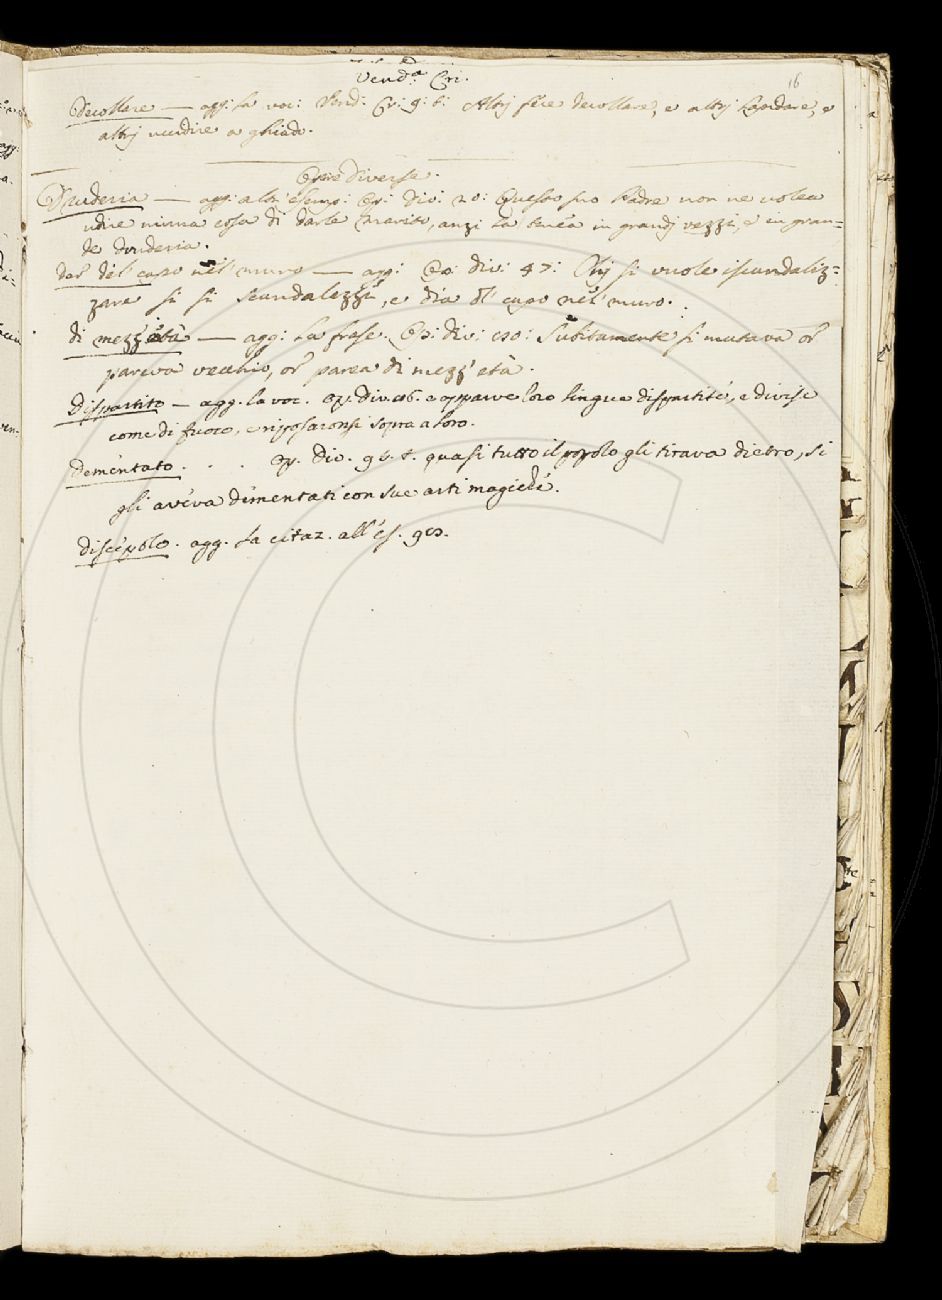 Vend.ª Cri.
16
Decollare — agg: la voc: Vend: Cr: 9: b: Altrj fece decollare, e altrj lapidare, e
altrj uccidere a ghiado.
Opere diverse.
Druderia — agg: altr' esemp: Op: div: 20: Questo suo Padre non ne volea
udire niuna cosa di darle marito, anzi la tenea in grandj vezzi, e in gran=
de druderia.
dar del capo nel muro — agg: Op: div: 47: Chj si vuole iscandaliz=
zare si si scandalezzi, e dia dl' capo nel muro.
di mezz' età — agg: La frase. Op: div: 120: Subitamente si mutava or
pareva vecchio, or parea di mezz' età.
Dispartito — agg. la voc. op. div. 126. e apparve loro lingue dispartite, e divise
come di fuoco, e riposaronsi sopra a loro.
Dementato. . . op. div. 96. t. quasi tutto il popolo gli tirava dietro, si
gli aveva dementati con sue arti magiche.
Discepolo. agg. La citaz. all' es. 93.